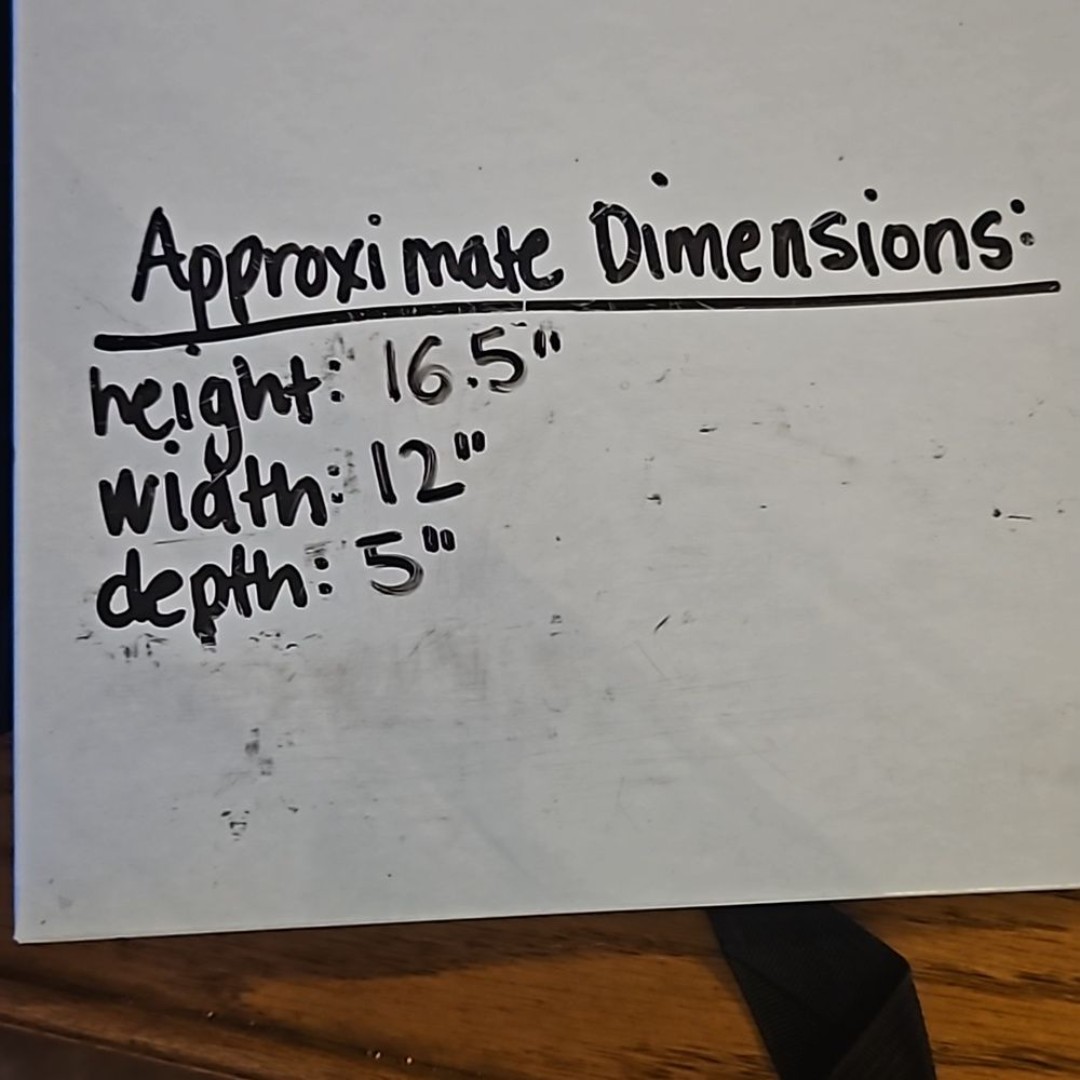 Approximate Dimensions:
height: 16.5"
width: 12"
depth: 5"